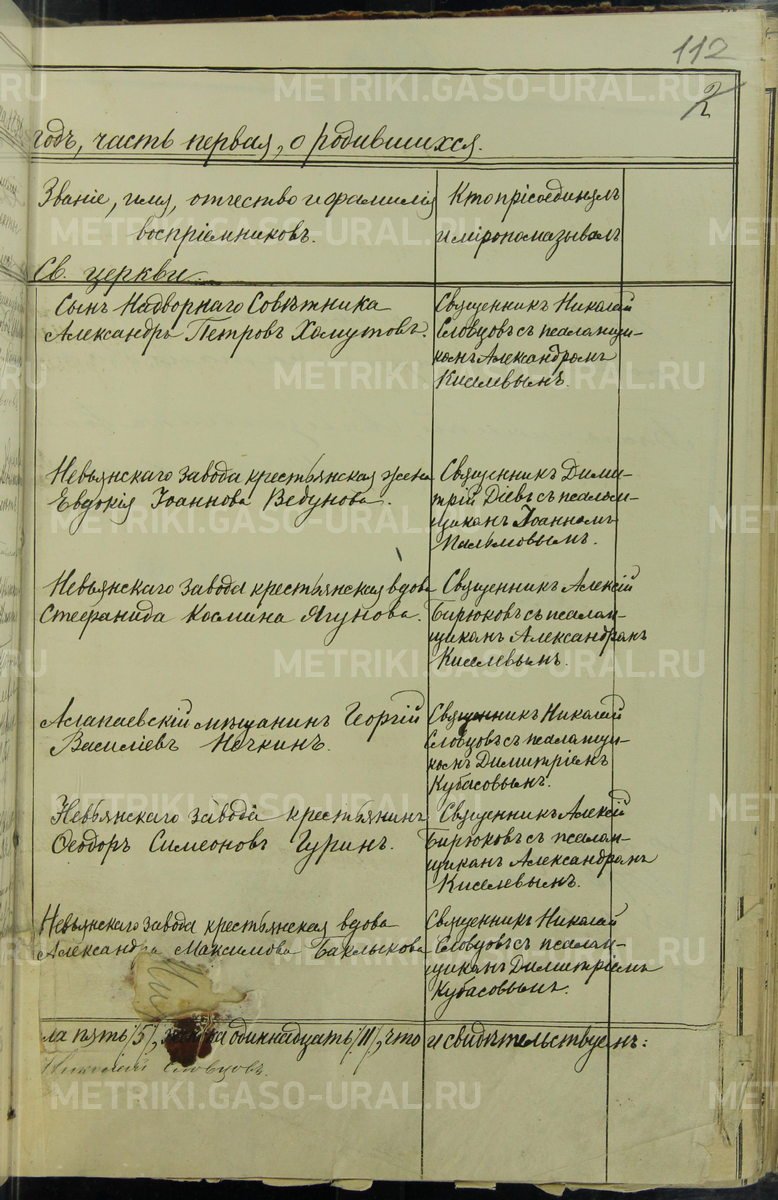 112
2
годъ, часть первая, о родившихся.
Званіе, имя, отчество и фамилія
воспріемниковъ.
Кто присоединялъ
и мѵропомазывалъ
Св. церкви.
Сынъ Надворнаго Совѣтника
Александръ Петровъ Хомутовъ.
Священникъ Николай
Словцовъ съ псаломщи-
комъ Александромъ
Киселевымъ.
Невьянскаго завода крестьянская жена
Евдокія Іоаннова Ведунова.
Священникъ Дими-
трій Діевъ съ псалом-
щикомъ Іоанномъ
Пальмовымъ.
Невьянскаго завода крестьянская вдова
Стефанида Космина Ягунова.
Священникъ Алексій
Бирюковъ съ псалом-
щикомъ Александромъ
Киселевымъ.
Алапаевскій мѣщанинъ Георгій
Василіевъ Нечкинъ.
Священникъ Николай
Словцовъ съ псаломщи-
комъ Димитріемъ
Кубасовымъ.
Невьянскаго завода крестьянинъ
Ѳеодоръ Симеоновъ Гуринъ.
Священникъ Алексій
Бирюковъ съ псалом-
щикомъ Александромъ
Киселевымъ.
Невьянскаго завода крестьянская вдова
Александра Максимова Баклыкова
Священникъ Николай
Словцовъ съ псалом-
щикомъ Димитріемъ
Кубасовымъ.
ла пять /5/, одиннадцать /11/, что и свидѣтельствуемъ:
Николай Словцовъ.
METRIKI.GASO-URAL.RU